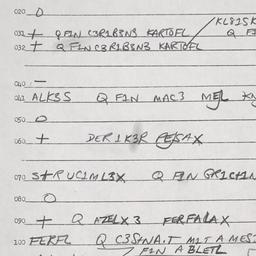 020 O
KL815K
031 + QFIN C3R1B3N3 KARTOFL Q FI
032 + Q FINC3R1B3N3 KARTOFL
040 —
041 ALK3S Q FIN MAC3 MEL
050 O
060 + DER1K3R
070 STRUCIML3X Q FIN GRICFIN
080 O
090 + Q AZELX3 FERFALAX
100 FEKFL Q MIT A MES
FIN A BLETL